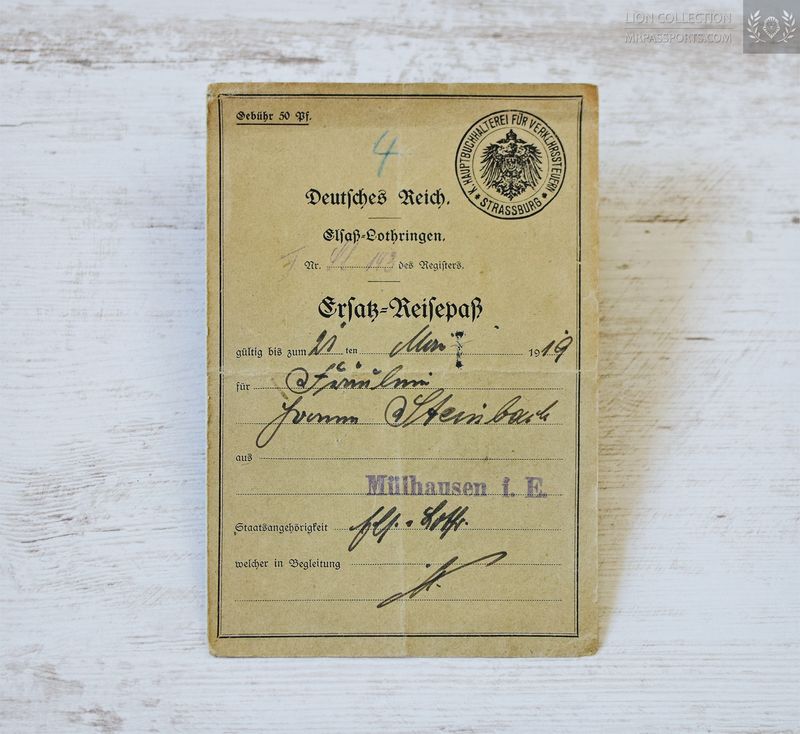 LION COLLECTION
MRPASSPORTS.COM
Gebühr 50 Pf.
K. HAUPTBUCHHALTEREI FÜR VERKEHRSSTEUERN
* STRASSBURG *
4
Deutſches Reich.
Elſaß-Lothringen.
Nr. des Regiſters.
Erſatz-Reiſepaß
gültig bis zum 21 ten Mai 1919
für Fräulein
Steinbach
aus
Mülhausen i. E.
Staatsangehörigkeit Elſ.-Lothr.
welcher in Begleitung